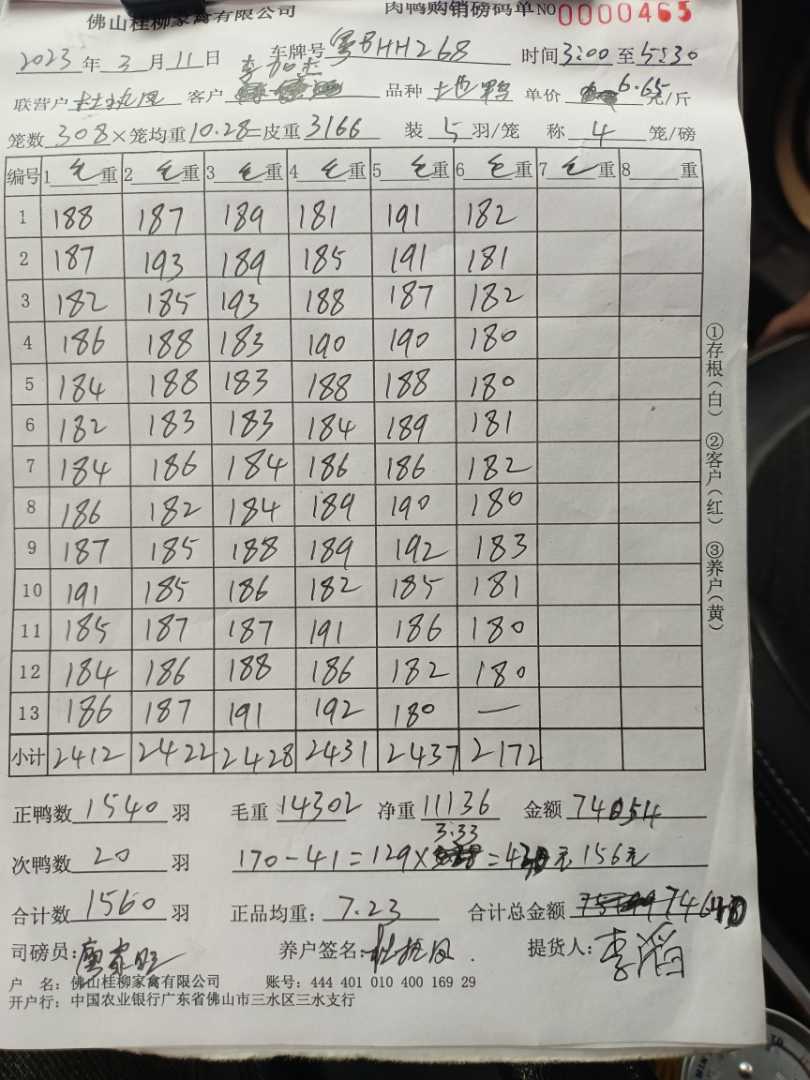 佛山桂柳家禽有限公司 肉鸭购销磅码单 NO 0000465
2023年3月11日 车牌号 粤BHH268 时间3:00至5:30
联营户 客户 品种 地鸭 单价 6.65元/斤
笼数308×笼均重10.28=皮重3166 装5羽/笼 称4笼/磅
编号 1毛重 2毛重 3毛重 4毛重 5毛重 6毛重 7毛重 8重
1 188 187 189 181 191 182
2 187 193 189 185 191 181
3 182 185 193 188 187 182
4 186 188 183 190 190 180
5 184 188 183 188 188 180
6 182 183 183 184 189 181
7 184 186 184 186 186 182
8 186 182 184 189 190 180
9 187 185 188 189 192 183
10 191 185 186 182 185 181
11 185 187 187 191 186 180
12 184 186 188 186 182 180
13 186 187 191 192 180 —
小计 2412 2422 2428 2431 2437 2172
正鸭数1540羽 毛重14302 净重11136 金额74054
次鸭数20羽 170-41=129×3.33= 元 156元
合计数1560羽 正品均重:7.23 合计总金额
司磅员: 养户签名: 提货人:李滔
户 名:佛山桂柳家禽有限公司 账号:444 401 010 400 169 29
开户行:中国农业银行广东省佛山市三水区三水支行
①存根(白) ②客户(红) ③养户(黄)